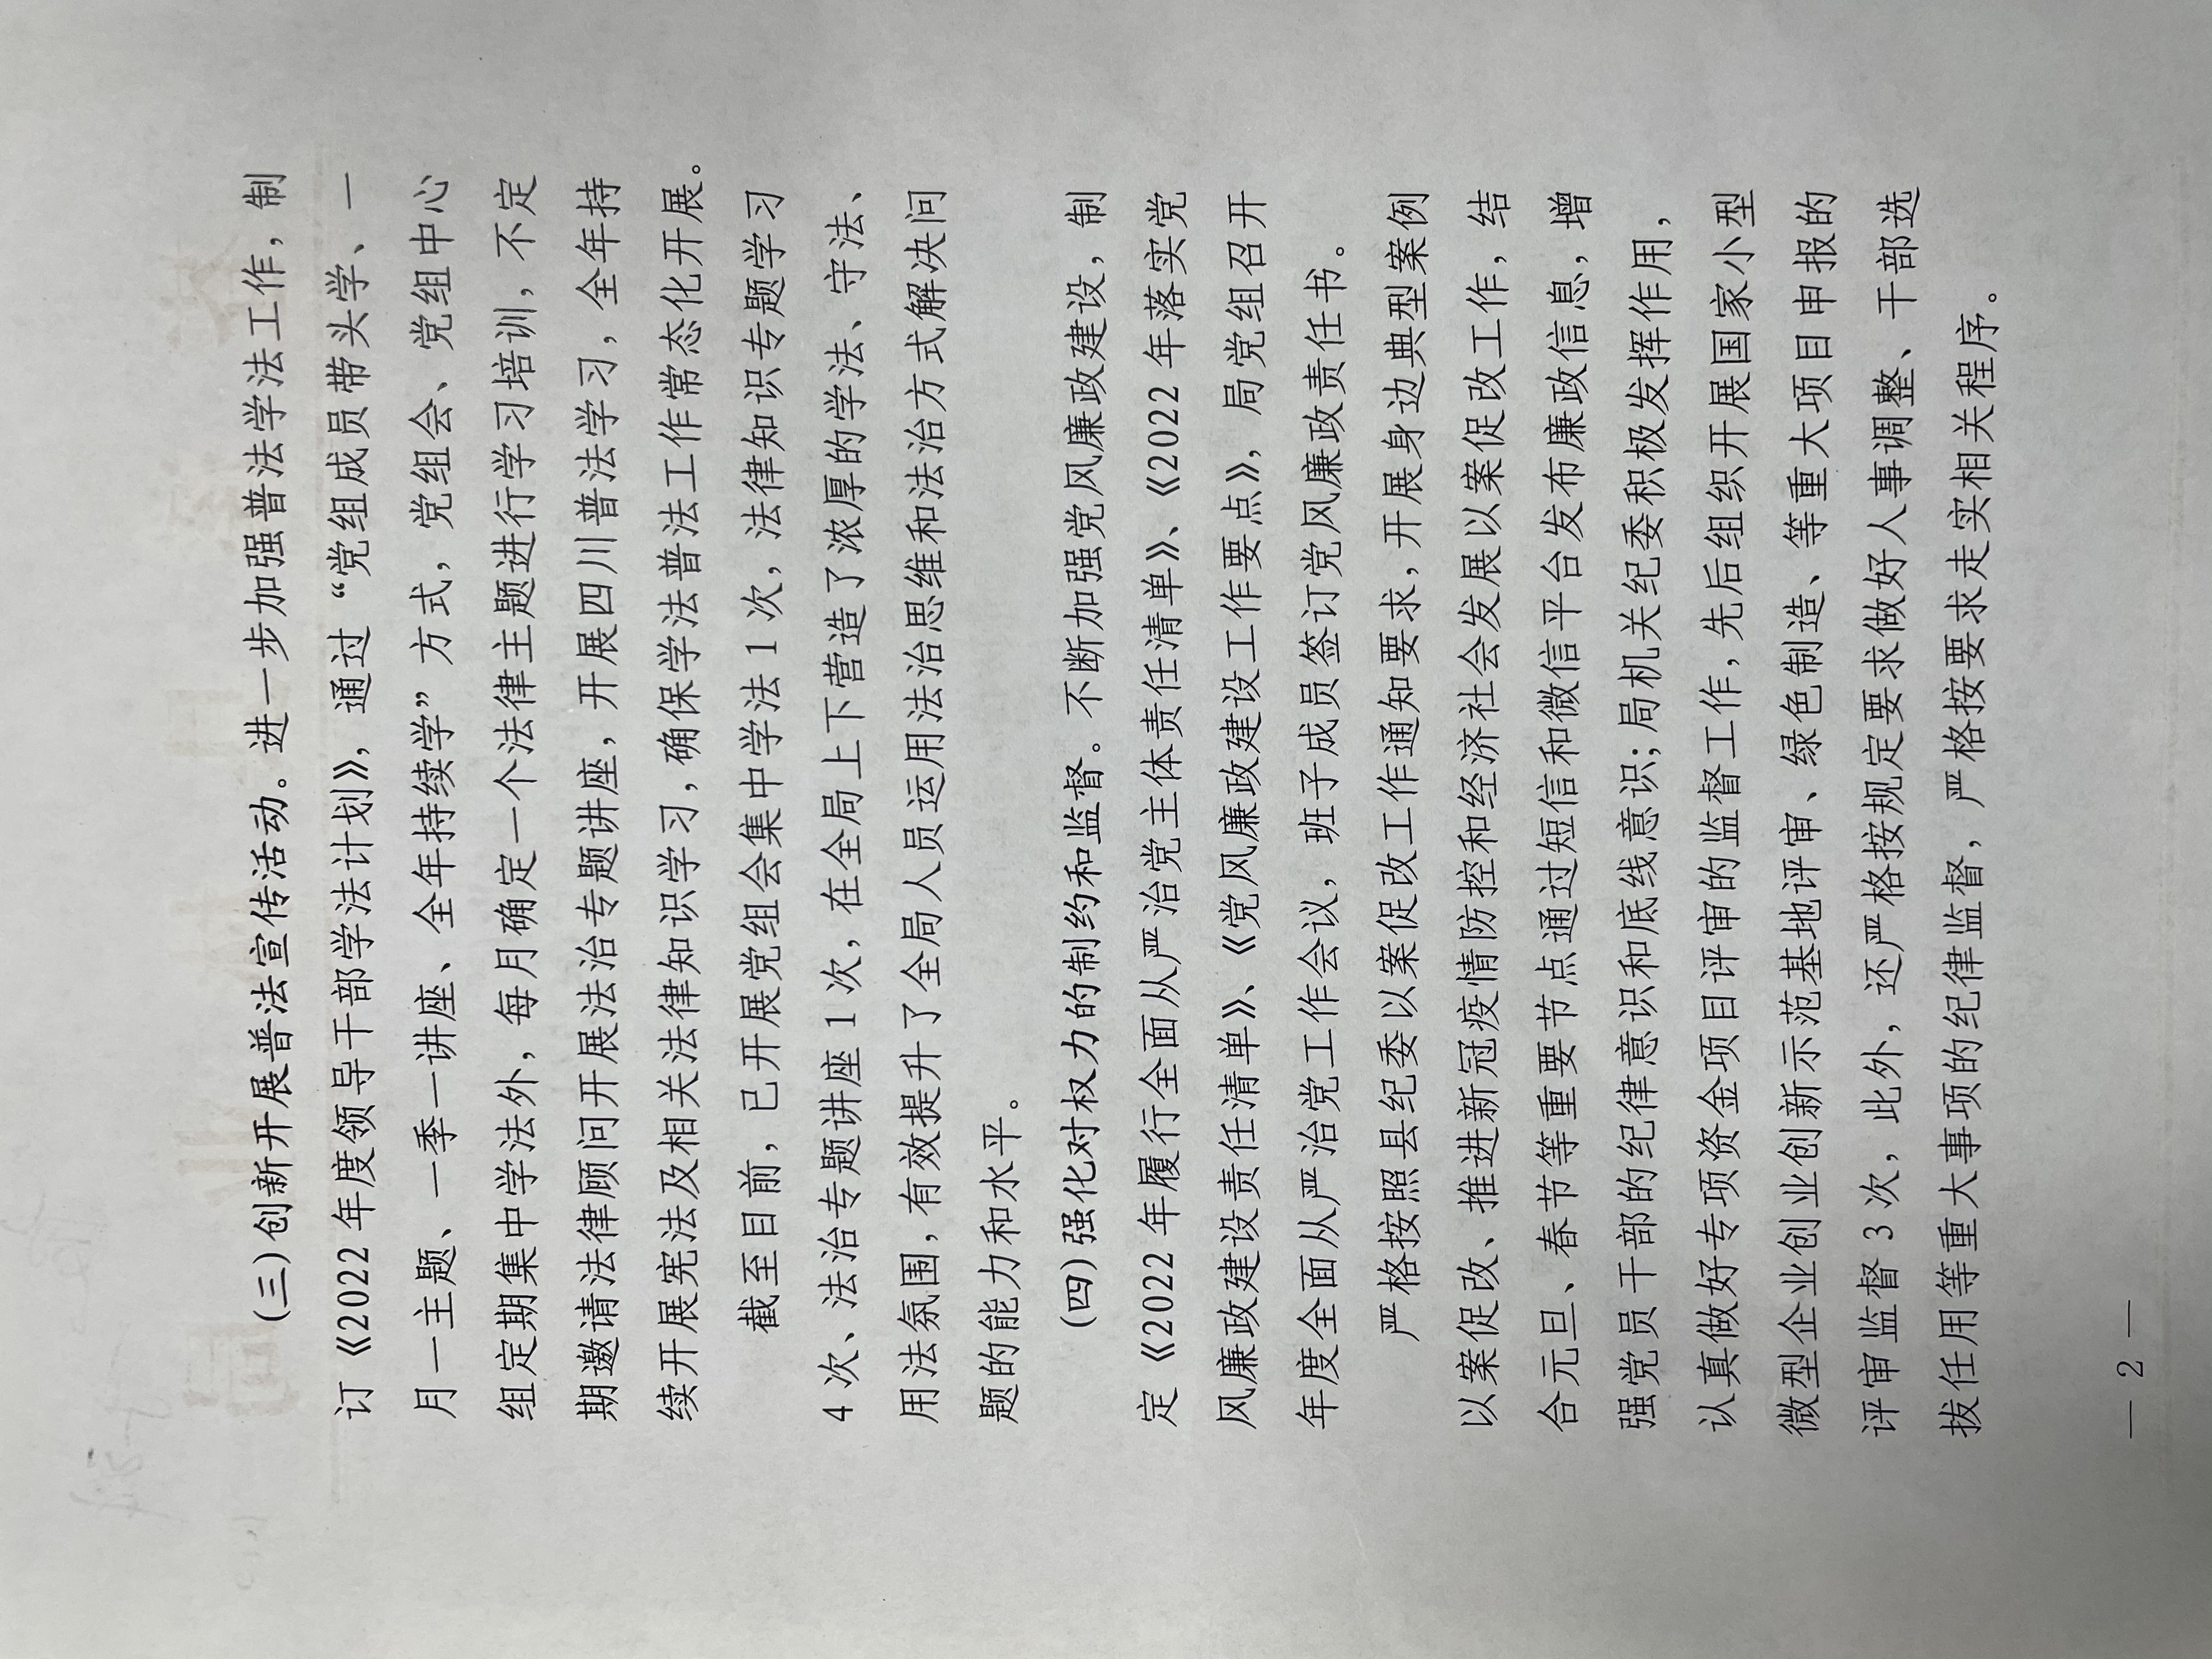 （三）创新开展普法宣传活动。进一步加强普法学法工作，制
订《2022 年度领导干部学法计划》，通过“党组成员带头学、一
月一主题、一季一讲座、全年持续学”方式，党组会、党组中心
组定期集中学法外，每月确定一个法律主题进行学习培训，不定
期邀请法律顾问开展法治专题讲座，开展四川普法学习，全年持
续开展宪法及相关法律知识学习，确保学法普法工作常态化开展。
截至目前，已开展党组会集中学法 1 次，法律知识专题学习
4 次、法治专题讲座 1 次，在全局上下营造了浓厚的学法、守法、
用法氛围，有效提升了全局人员运用法治思维和法治方式解决问
题的能力和水平。
（四）强化对权力的制约和监督。不断加强党风廉政建设，制
定《2022 年履行全面从严治党主体责任清单》、《2022 年落实党
风廉政建设责任清单》、《党风廉政建设工作要点》，局党组召开
年度全面从严治党工作会议，班子成员签订党风廉政责任书。
严格按照县纪委以案促改工作通知要求，开展身边典型案例
以案促改、推进新冠疫情防控和经济社会发展以案促改工作，结
合元旦、春节等重要节点通过短信和微信平台发布廉政信息，增
强党员干部的纪律意识和底线意识；局机关纪委积极发挥作用，
认真做好专项资金项目评审的监督工作，先后组织开展国家小型
微型企业创业创新示范基地评审、绿色制造、等重大项目申报的
评审监督 3 次，此外，还严格按规定要求做好人事调整、干部选
拔任用等重大事项的纪律监督，严格按要求走实相关程序。
— 2 —